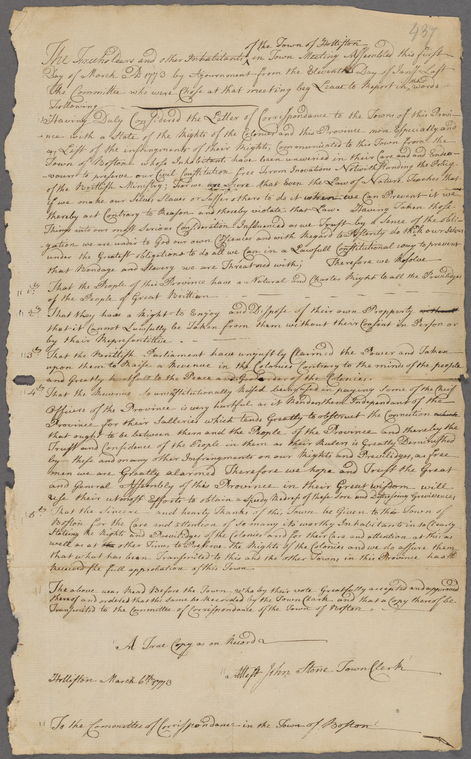 437
The Freeholders and other Inhabitants of the Town of Holliston in Town Meeting Assembled this first
Day of March AD 1773 by Adjournment from the Eleventh Day of Jany Last
the Committee who were Chose at that meeting beg Leave to Report in words
Following
Having Duly Considred the Letter of Correspondance to the Towns of this Provi=
=nce with a State of the Rights of the Colonies and this Province more Especially and
a List of the infringments of their Rights, Communicated to this Town from the
Town of Boston whose Inhabitants have been unweried in their Care and Endea=
=vours to preserve our Civil Constitution free from Inovations Notwithstanding the Policy
of the Brittish Ministrey; For we are sure that Even the Law of Nature Teaches that
if we make our Selves Slaves or Suffer others to do it when we Can Prevent it we
thereby act Contrary to Reason and thereby violate that Law Having Taken those
Things into our most Serious Consideration Influenced as we Trust by a Sense of the obli=
gation we are under to God our own Consciences and with Regard to Posterity do think our selves
under the Greatest obligations to do all we Can in a Lawfull Constitutional way to prevent
that Bondage and Slavery we are Threatned with; Therefore we Resolve
1 That the People of this Province have a Natural and Charter Right to all the Priviledges
of the People of Great Brittian
2 That they have a Right to Enjoy and Dispose of their own Property
that it Cannot Lawfully be Taken from them without their Consent in Person or
by their Representitive
3 That the Brittish Parliament have unjustly Claimed the Power and Taken
upon them to Raise a Revenue in the Colonies Contrary to the minds of the people
and Greatly hurtfull to the Peace and Good order of the Colonies
4 That the Revenue so unconstitutionally Raised being used in paying some of the Chief
Officers of the Province is very hurtful as it Renders them Independant of the
Province for their Salleries which tends Greatly to obstruct the Connection
that ought to be between them and the People of the Province and thereby the
Trust and Confidence of the People in them as their Rulers is Greatly Deminished
by these and many other Infringments on our Rights and Priviledges, as free
men we are Greatly alarmed Therefore we hope and Trust the Great
and General Assembly of this Province in their Great wisdom will
use their utmost Efforts to obtain a Speedy Redress of these Sore and Distressing Greivences
5 That the Sincere and hearty Thanks of this Town be Given to the Town of
Boston for the Care and attention of so many its worthy Inhabitants in so Clearly
Stateing the Rights and Priviledges of the Colonies and for their Care and attention at this as
well as at other times to Preserve the Rights of the Colonies and we do assure them
that what has been Transmited to this and the other Towns in this Province has
Received the full approbation of this Town
The above was Read Before the Town who by their vote Greatfully accepted and approved
thereof and ordered that the same be Recorded by the Town Clerk and that a Copy thereof be
Transmited to the Committee of Correspondance of the Town of Boston
A True Copy as on Record
Attest John Stone Town Clerk
Holliston March 6th 1773
To the Committee of Corrispondance in the Town of Boston